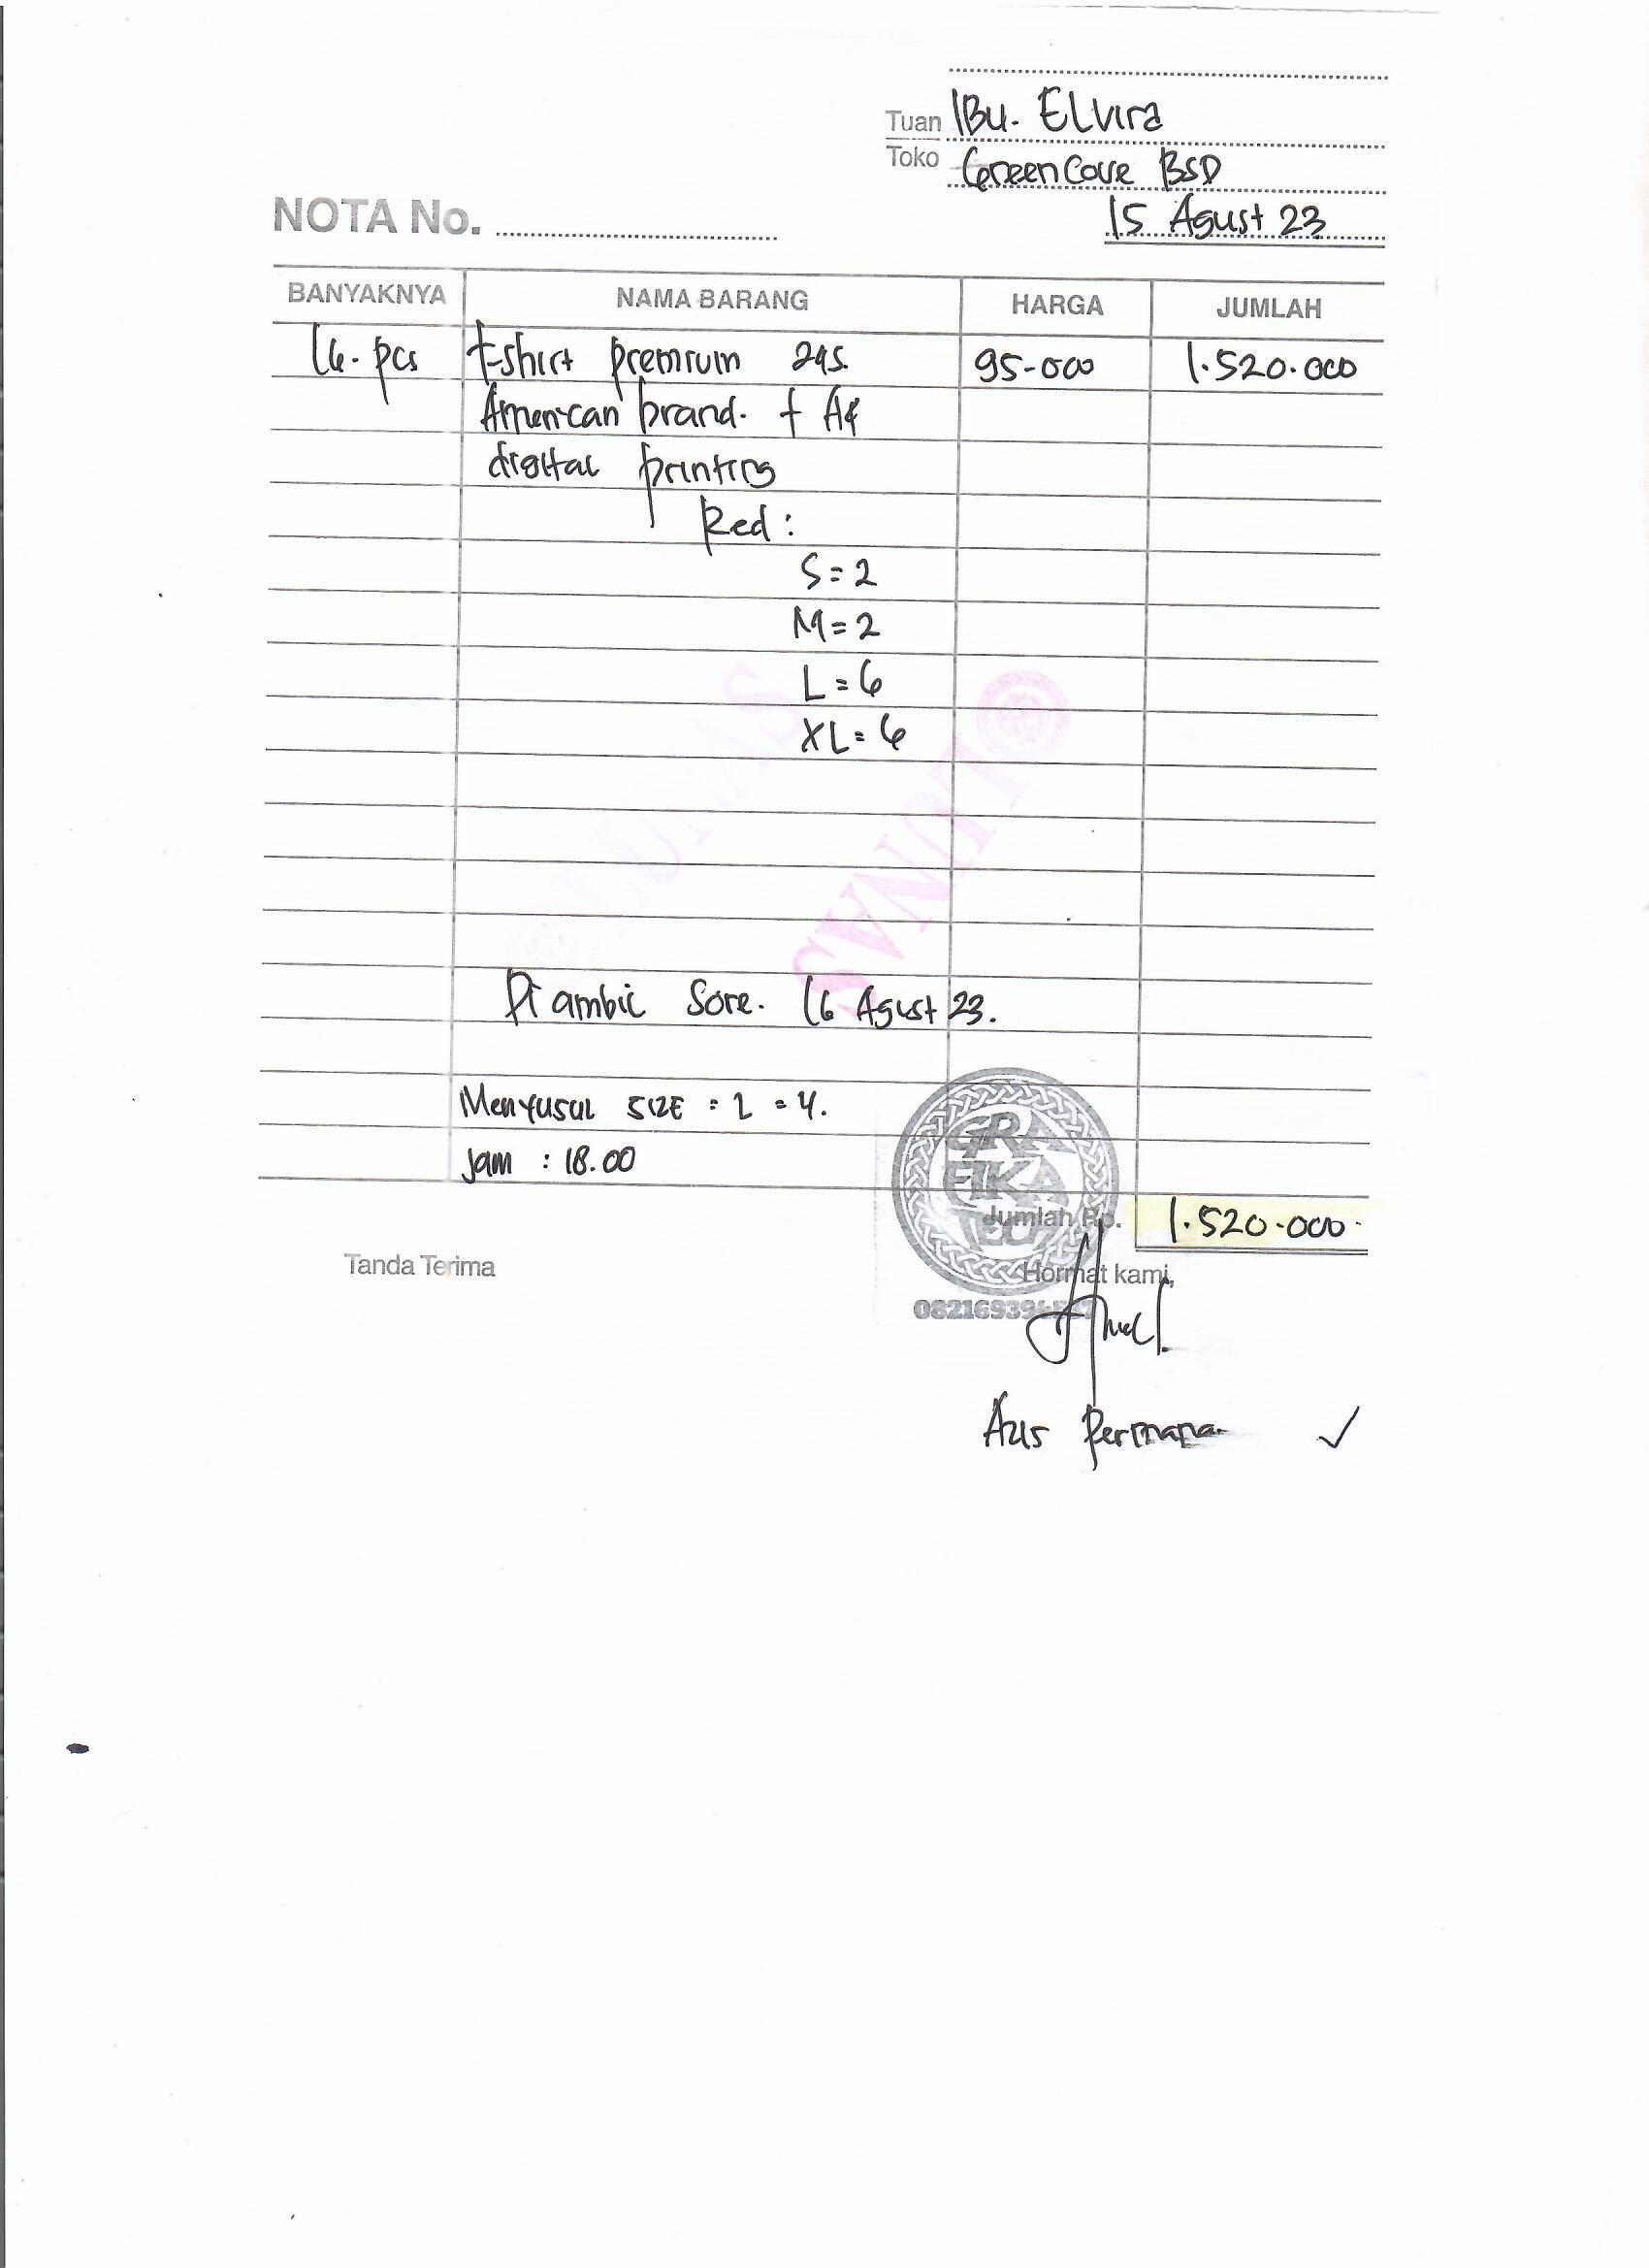 Tuan IBu. Elvira
Toko GreenCove BSD
NOTA No.
15 Agust 23
BANYAKNYA NAMA BARANG HARGA JUMLAH
16. pcs t-shirt premium 24s. 95-000 1.520.000
American brand. + A4
digital printing
Red :
S = 2
M = 2
L = 6
XL = 6
LUNAS
LUNAS
Di ambil Sore. 16 Agust 23.
Menyusul SIZE = L = 4.
Jam : 18.00
GRA
FIKA
Jumlah Rp. 1.520.000.
Tanda Terima
Hormat kami,
Azis Permana.